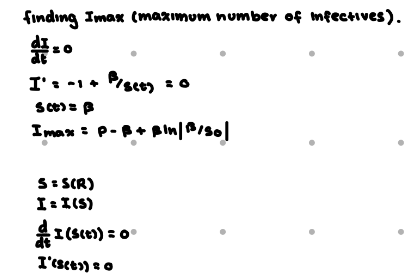 finding Imax (maximum number of infectives).
dI/dt = 0
I' = -1 + β/S(t) = 0
S(t) = β
Imax = P - β + β ln|β/S0|
S = S(R)
I = I(S)
d/dt I(S(t)) = 0
I'(S(t)) = 0